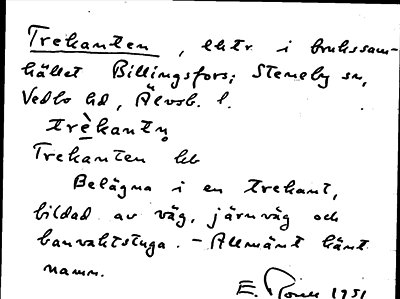 Trekanten, lhtr i brukssam-
hället Billingsfors; Steneby sn,
Vedbo hd, Älvsb. l.
trèkantn̥
Trekanten
Belägna i en trekant,
bildad av väg, järnväg och
banvaktstuga. - Allmänt känt
namn.
E. 1951